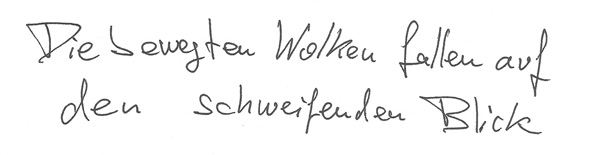 Die bewegten Wolken fallen auf
den schweifenden Blick